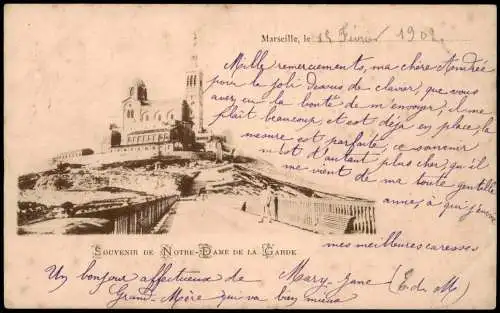 Marseille, le 18 Février 1902
Mille remerciements, ma chère Andrée
pour le joli dessus de clavier, que vous
avez eu la bonté de m'envoyer, il me
plaît beaucoup, et est déjà en place, la
mesure est parfaite, ce souvenir
m'est d'autant plus cher, qu'il
me vient de ma toute gentille
amie à qui j'envoie
mes meilleures caresses
SOUVENIR DE NOTRE-DAME DE LA GARDE
Un bonjour affectueux de Mary-Jane (E. de M)
Grand-Mère qui va bien mieux